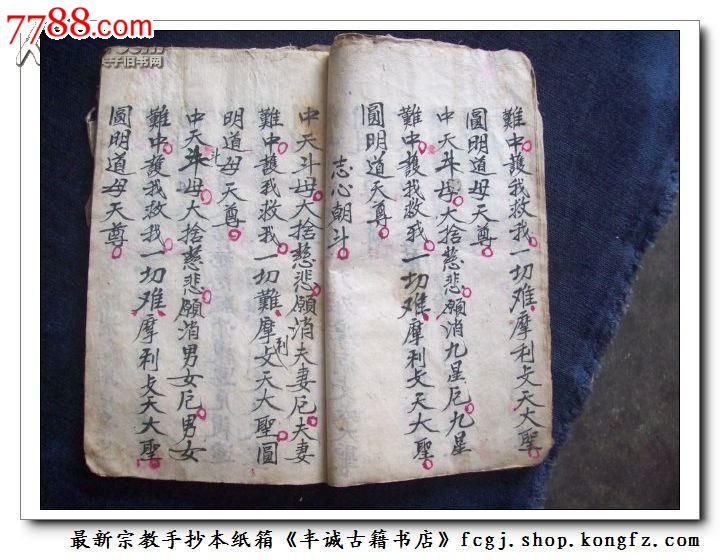 7788.com
难中護我救我一切难摩利攴天大聖
圓明道母天尊
中天斗母大捨慈悲願消九星厄九星
難中護我救我一切难摩利攴天大聖
圓明道天尊
志心朝斗
中天斗母大捨慈悲願消夫妻厄夫妻
難中護我救我一切難摩利攴天大聖圓
明道母天尊
中天斗母大捨慈悲願消男女厄男女
難中護我救我一切难摩利攴天大聖
圓明道母天尊
最新宗教手抄本纸箱《丰诚古籍书店》fcgj.shop.kongfz.com